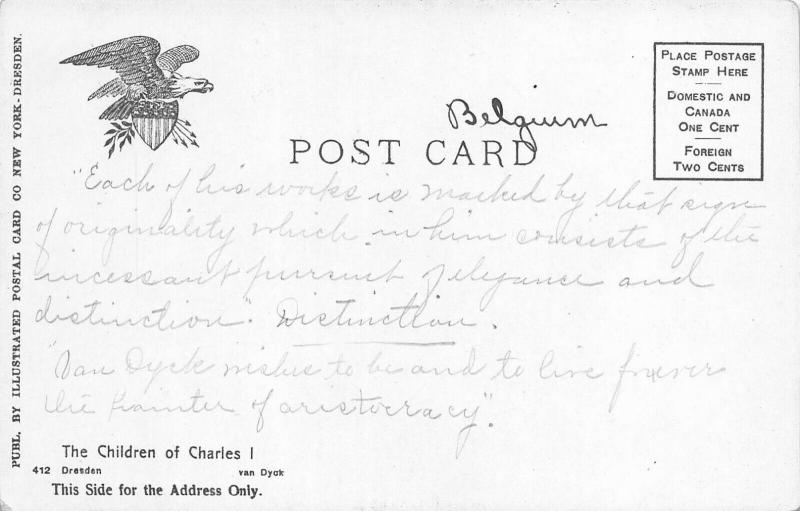 PUBL. BY ILLUSTRATED POSTAL CARD CO NEW YORK-DRESDEN.
PLACE POSTAGE
STAMP HERE
DOMESTIC AND
CANADA
ONE CENT
FOREIGN
TWO CENTS
Belgium
POST CARD
"Each of his works is marked by that sign
of originality which in him consists of the
incessant pursuit of elegance and
distinction". Distinction.
"Van Dyck wishes to be and to live forever
the painter of aristocracy".
The Children of Charles I
412 Dresden van Dyck
This Side for the Address Only.